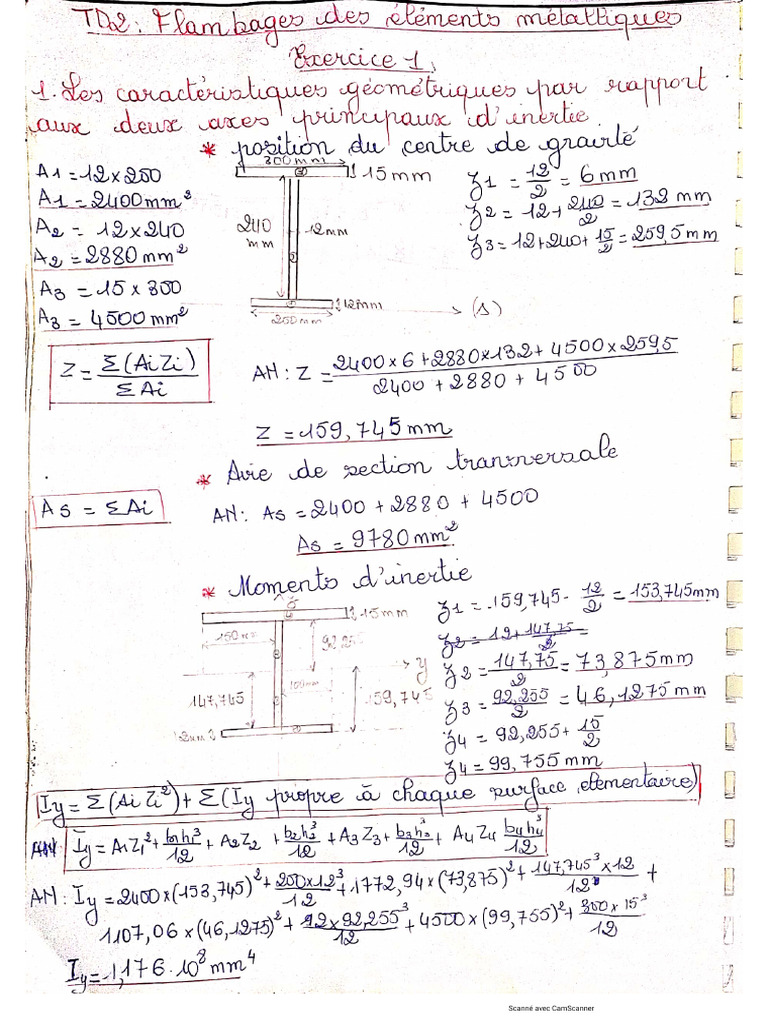 TD2: Flambages des éléments métalliques
Exercice 1
1. Les caractéristiques géométriques par rapport
aux deux axes principaux d'inertie.
* position du centre de gravité
A1 = 12 x 250
A1 = 2400 mm²
A2 = 12 x 240
A2 = 2880 mm²
A3 = 15 x 300
A3 = 4500 mm²
300 mm
15 mm
240
mm
12mm
12mm
250mm
(1)
z1 = 12/2 = 6 mm
z2 = 12 + 240/2 = 132 mm
z3 = 12+240+ 15/2 = 259,5 mm
Z = Σ(Ai Zi) / ΣAi
AN: Z = 2400 x 6 + 2880 x 132 + 4500 x 259,5 / 2400 + 2880 + 4500
Z = 159,745 mm
* Aire de section transversale
As = ΣAi
AN: As = 2400 + 2880 + 4500
As = 9780 mm²
* Moments d'inertie
15mm
150
92,255
y
147,745
100mm
159,745
12mm
z1 = 159,745 - 12/2 = 153,745mm
z2 = 12 + 147,75/2 =
z2 = 147,75/2 = 73,875mm
z3 = 92,255/2 = 46,1275mm
z4 = 92,255 + 15/2
z4 = 99,755 mm
Iy = Σ(Ai Zi²) + Σ(Iy propre à chaque surface elementaire)
AN Iy = A1Z1² + b1h1³/12 + A2Z2 + b2h2³/12 + A3Z3 + b3h3³/12 + A4Z4 b4h4³/12
AN: Iy = 2400 x (153,745)² + 200 x 12³/12 + 1772,94 x (73,875)² + 147,745³ x 12/12 +
1107,06 x (46,1275)² + 12 x 92,255³/12 + 4500 x (99,755)² + 300 x 15³/12
Iy = 1,176 . 10⁸ mm⁴
Scanné avec CamScanner